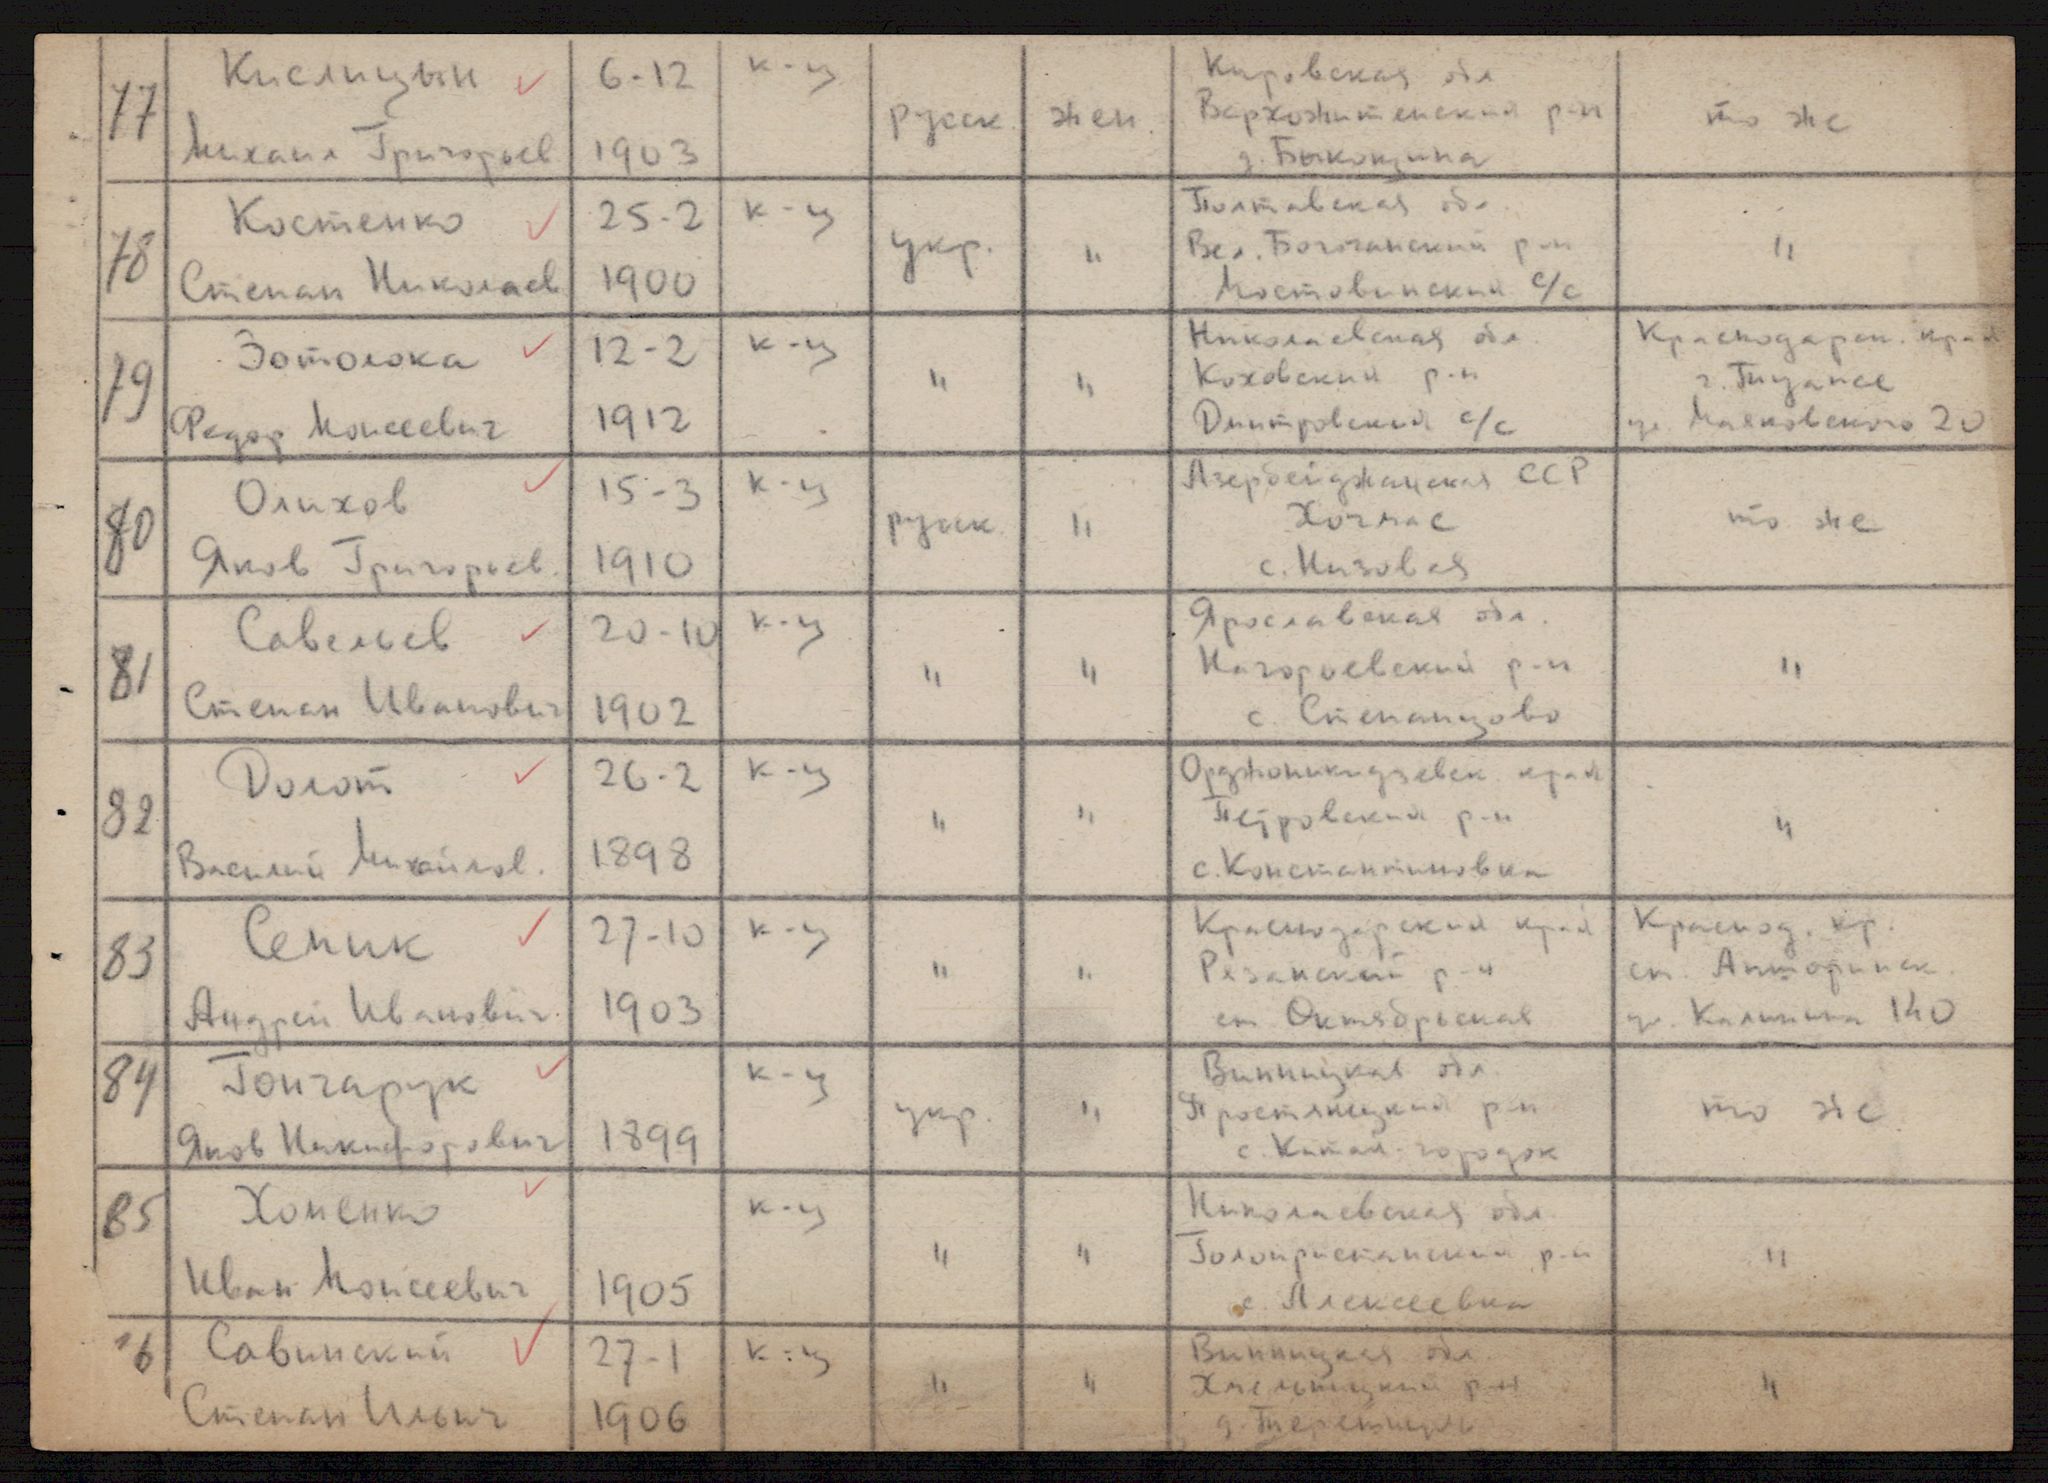 77 Кислицын ✓ 6-12 к-ц Кировская обл
русск. жен. Верхошитемский р-н то же
Михаил Григорьев 1903 д. Быковщина
78 Костенко ✓ 25-2 к-ц Полтавская обл.
укр. " Вел. Богочанский р-н "
Степан Николаев 1900 Мостовинский с/с
79 Зотолока ✓ 12-2 к-ц Николаевская обл. Краснодарск. край
" " Коховский р-н г.
Федор Моисеевич 1912 Дмитровский с/с ул. Маяковского 20
80 Олихов ✓ 15-3 к-ц Азербейджанская ССР
русск. " Хочмас то же
Яков Григорьев. 1910 с. Низовая
81 Савельев ✓ 20-10 к-ц Ярославская обл.
" " Нагорьевский р-н "
Степан Иванович 1902 с. Степанцово
82 Долот ✓ 26-2 к-ц Орджоникидзевск. край
" " Петровский р-н "
Василий Михайлов. 1898 с. Константиновка
83 Семик ✓ 27-10 к-ц Краснодарский край Краснод. кр.
" " Рязанский р-н ст.
Андрей Иванович. 1903 ст. Октябрьская ул. Калинина 140
84 Гончарук ✓ к-ц Винницкая обл.
укр. " Тростянецкий р-н то же
Яков Никифорович 1899 с. Китай-городок
85 Хоменко ✓ к-ц Николаевская обл
" " Голопристанский р-н "
Иван Моисеевич 1905 с. Алексеевка
86 Савинский ✓ 27-1 к-ц Винницкая обл.
" " Хмельницкий р-н "
Степан Ильич 1906 д.